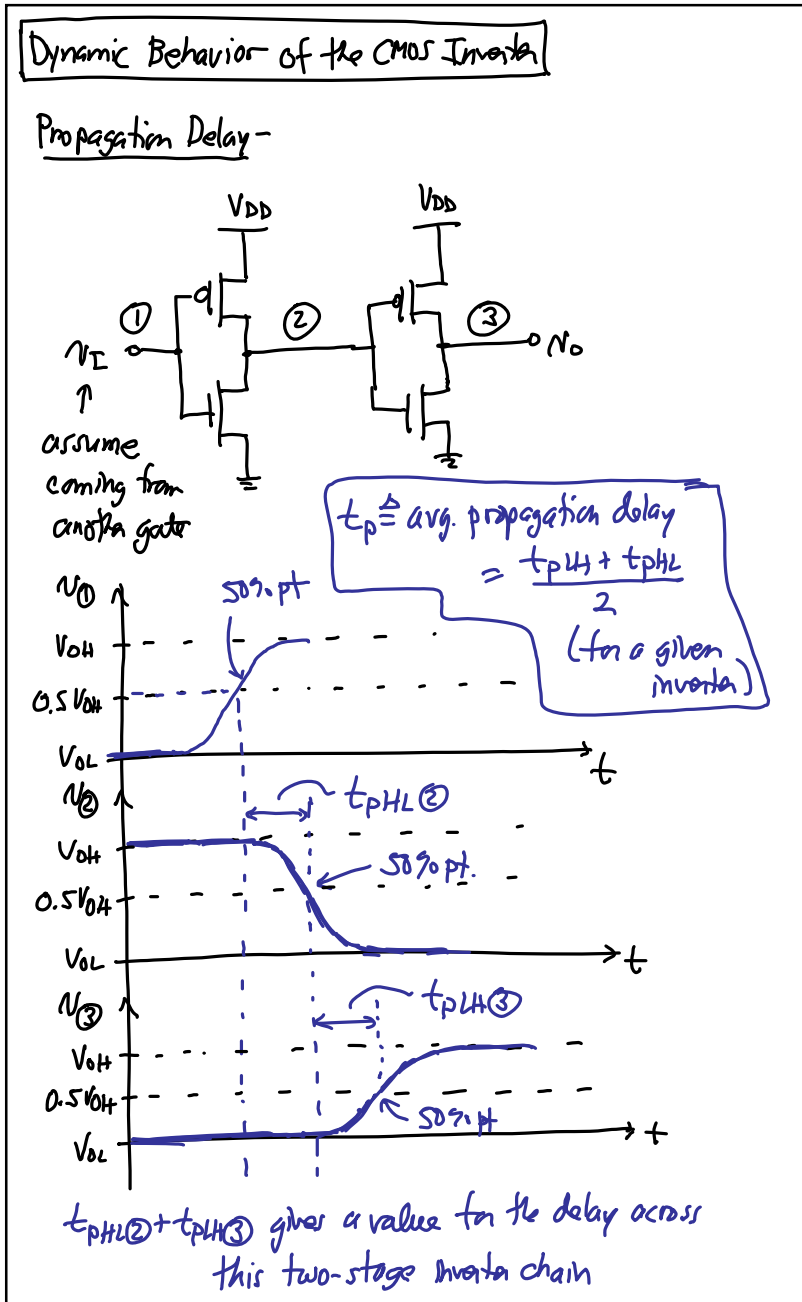 Dynamic Behavior of the CMOS Inverter
Propagation Delay-
VDD
VDD
①
②
③
vI
vO
↑
assume
coming from
another gate
tp ≜ avg. propagation delay
= (tpLH + tpHL)/2
(for a given
inverter)
v①
50% pt
VOH
0.5VOH
VOL
t
v②
tpHL②
VOH
50% pt.
0.5VOH
VOL
t
v③
tpLH③
VOH
0.5VOH
50% pt
VOL
t
tpHL② + tpLH③ gives a value for the delay across
this two-stage inverter chain